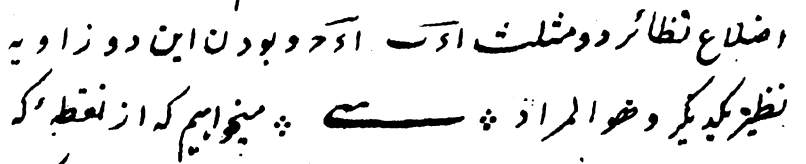 اضلاع نظائر دو مثلث اءب اءج و بودن این دو زاویه
نظیر یکدیگر و هو المراد ∴ ∴ میخواهیم که از نقطهٔ که